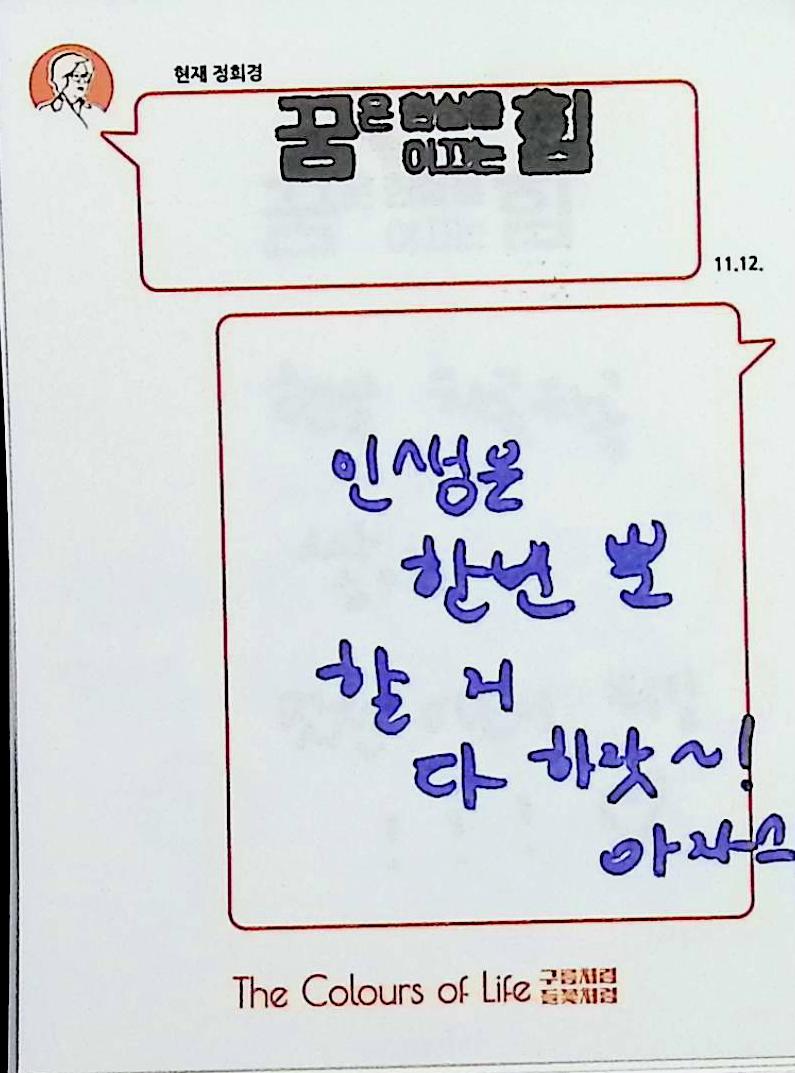 현재 정희경
꿈은 현실을
이끄는 힘
11.12.
인생은
한번 뿐
할 거
다 하랏~!
아자스
The Colours of Life 구름처럼
들꽃처럼